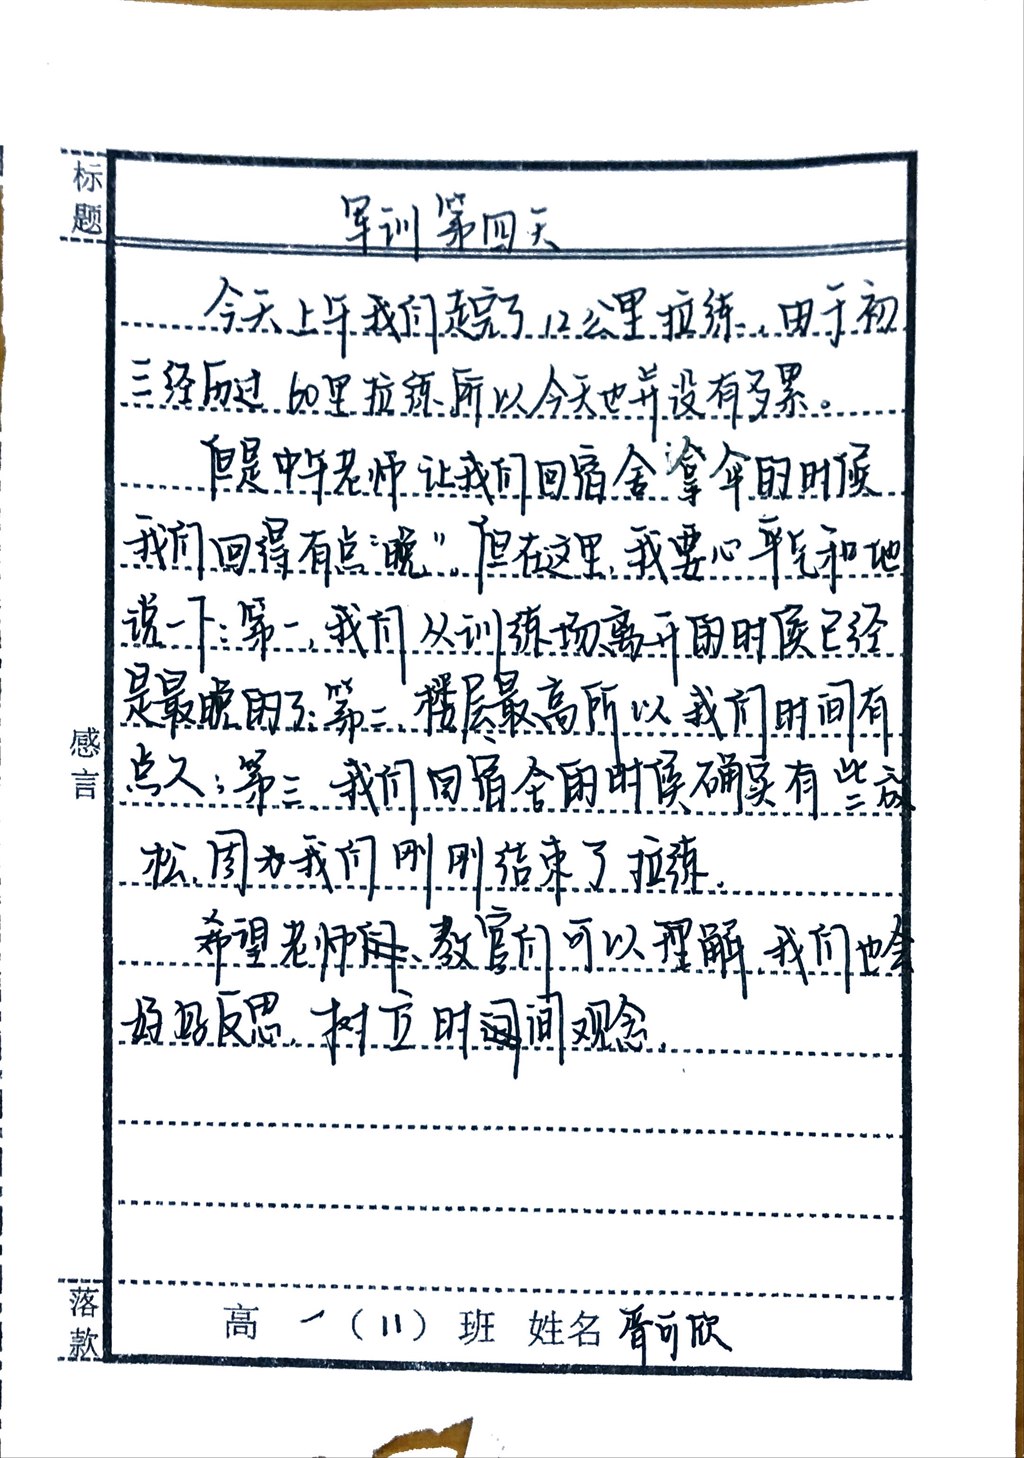 标题
军训第四天
今天上午我们走完了12公里拉练,由于初
三经历过60里拉练所以今天也并没有多累。
但是中午老师让我们回宿舍拿伞的时候
我们回得有点“晚”。但在这里,我要心平气和地
说一下:第一,我们从训练场离开的时候已经
是最晚的了;第二,楼层最高所以我们时间有
点久;第三,我们回宿舍的时候确实有些放
松,因为我们刚刚结束了拉练。
希望老师们、教官们可以理解,我们也会
好好反思,树立时间观念。
感言
落款
高一(11)班 姓名 晋可欣